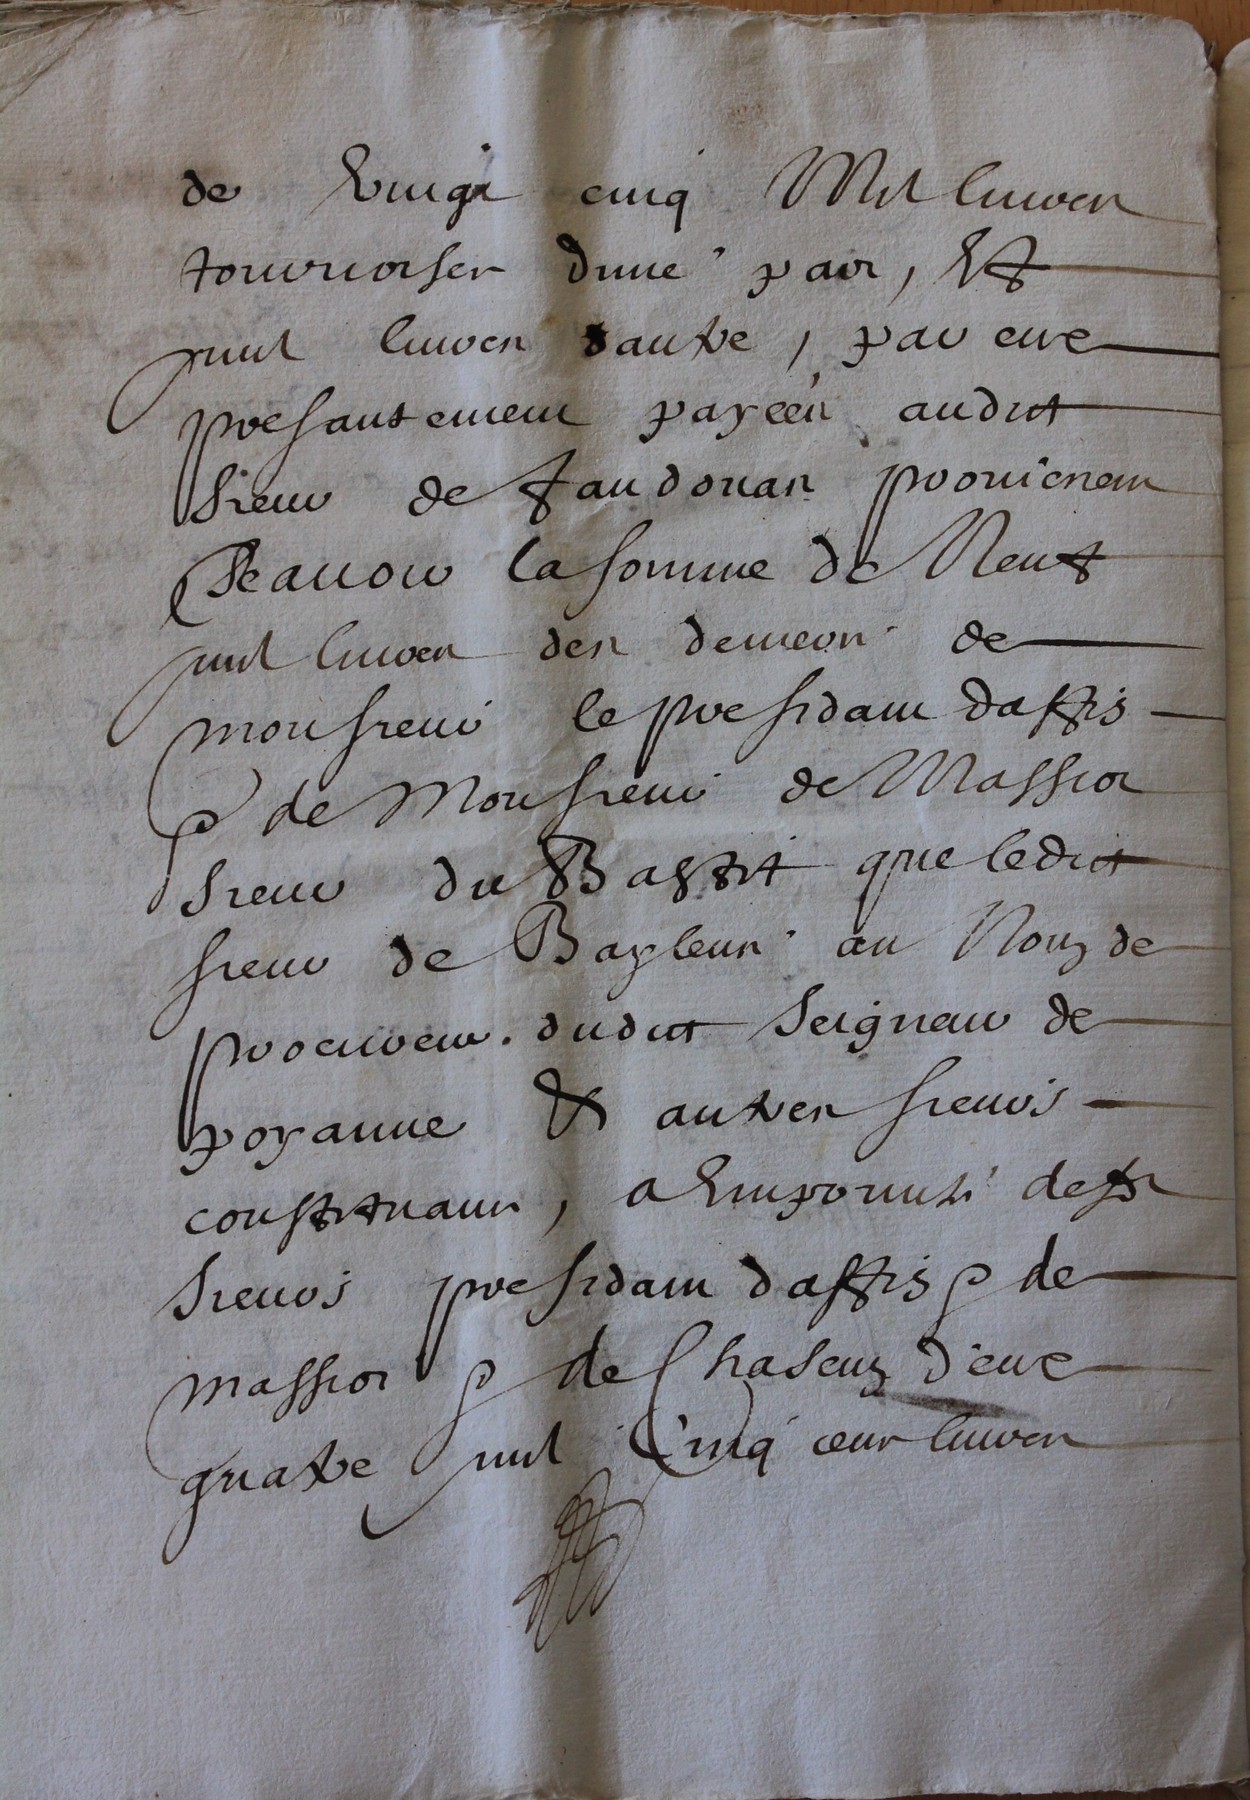 de Vingt cinq Mil livres
tournoises dune part, Et
mil livres dautre, par eux
presantement payées audit
sieur de faudoüas provienent
Scavoir la somme de Neuf
mil livres des deniers de
monsieur le presidant daffis
& de Monsieur de Massiot
sieur du Bastit que ledit
sieur de Baylens au Nom de
procureur dudit Seigneur de
poyanne & autres sieurs
constituans, a Empruntè desd
sieurs presidant daffis & de
massiot & de Chaseun d'eux
quatre mil Cinq cens livres